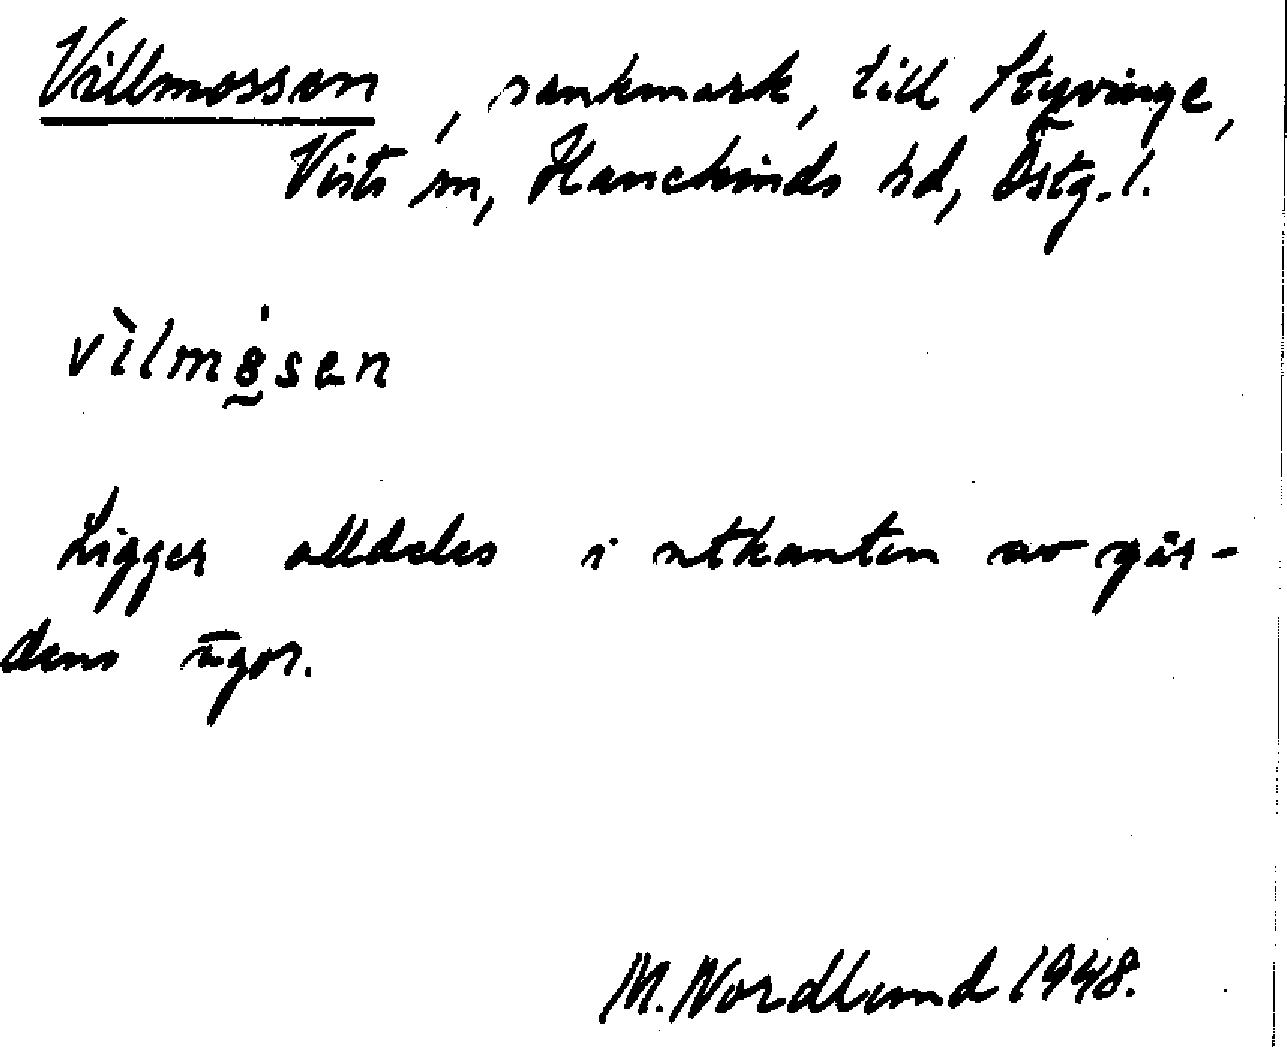 Villmossen, sankmark, till Styvinge,
Vists sn, Hanekinds hd, Östg. l.
vìlmȯ̰sen
Ligger alldeles i utkanten av går-
dens ägor.
M. Nordlund 1948.